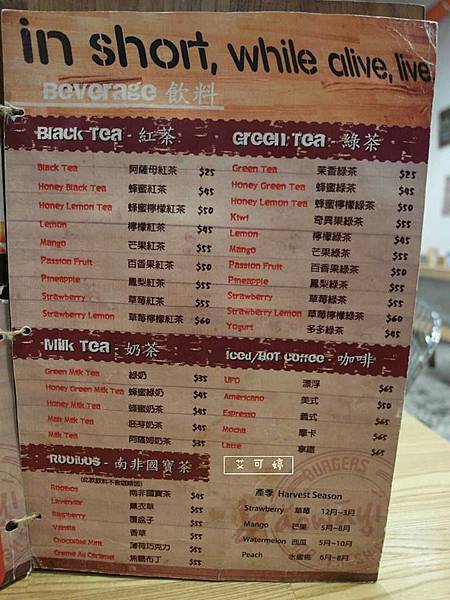 in short, while alive, live
Beverage 飲料
Black Tea - 紅茶
Black Tea 阿薩母紅茶 $25
Honey Black Tea 蜂蜜紅茶 $45
Honey Lemon Tea 蜂蜜檸檬紅茶 $50
Lemon 檸檬紅茶 $45
Mango 芒果紅茶 $55
Passion Fruit 百香果紅茶 $50
Pineapple 鳳梨紅茶 $55
Strawberry 草莓紅茶 $55
Strawberry Lemon 草莓檸檬紅茶 $60
Green Tea - 綠茶
Green Tea 茉香綠茶 $25
Honey Green Tea 蜂蜜綠茶 $45
Honey Lemon Tea 蜂蜜檸檬綠茶 $50
Kiwi 奇異果綠茶 $55
Lemon 檸檬綠茶 $45
Mango 芒果綠茶 $55
Passion Fruit 百香果綠茶 $50
Pineapple 鳳梨綠茶 $55
Strawberry 草莓綠茶 $55
Strawberry Lemon 草莓檸檬綠茶 $60
Yogurt 多多綠茶 $45
Milk Tea - 奶茶
Green Milk Tea 綠奶 $35
Honey Green Milk Tea 蜂蜜綠奶 $45
Honey Milk Tea 蜂蜜奶茶 $45
Milk Tea 胚芽奶茶 $45
Milk Tea 阿薩姆奶茶 $35
Iced/Hot Coffee - 咖啡
UFO 漂浮 $65
Americano 美式 $50
Espresso 義式 $65
Mocha 摩卡 $65
Latte 拿鐵 $65
Rooibos - 南非國寶茶
(此款飲料不含咖啡因)
Rooibos 南非國寶茶 $45
Lavender 薰衣草 $55
Raspberry 覆盆子 $55
Vanilla 香草 $55
Chocolate Mint 薄荷巧克力 $55
Creme Au Caramel 焦糖布丁 $55
艾可婷
BURGERS
產季 Harvest Season
Strawberry 草莓 12月~3月
Mango 芒果 5月~8月
Watermelon 西瓜 5月~10月
Peach 水蜜桃 6月~8月